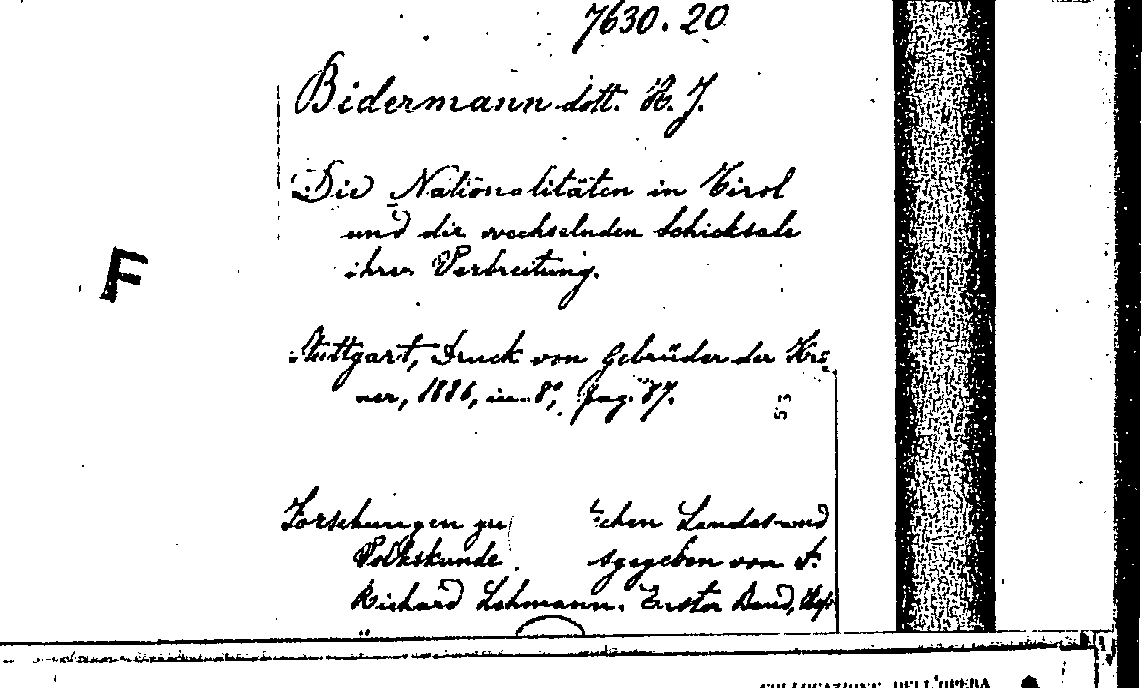 7630.20
Bidermann dott. H. J.
Die Nationalitäten in Tirol
und die wechselnden Schicksale
ihrer Verbreitung.
F
Stuttgart, Druck von Gebrüder der Krö=
ner, 1886, in 8°, pag. 87.
53
Forschungen zu chen Landes- und
Volkskunde sgegeben von
Richard Lehmann. Erster Band, Hef
COLLOCAZIONE DELL'OPERA